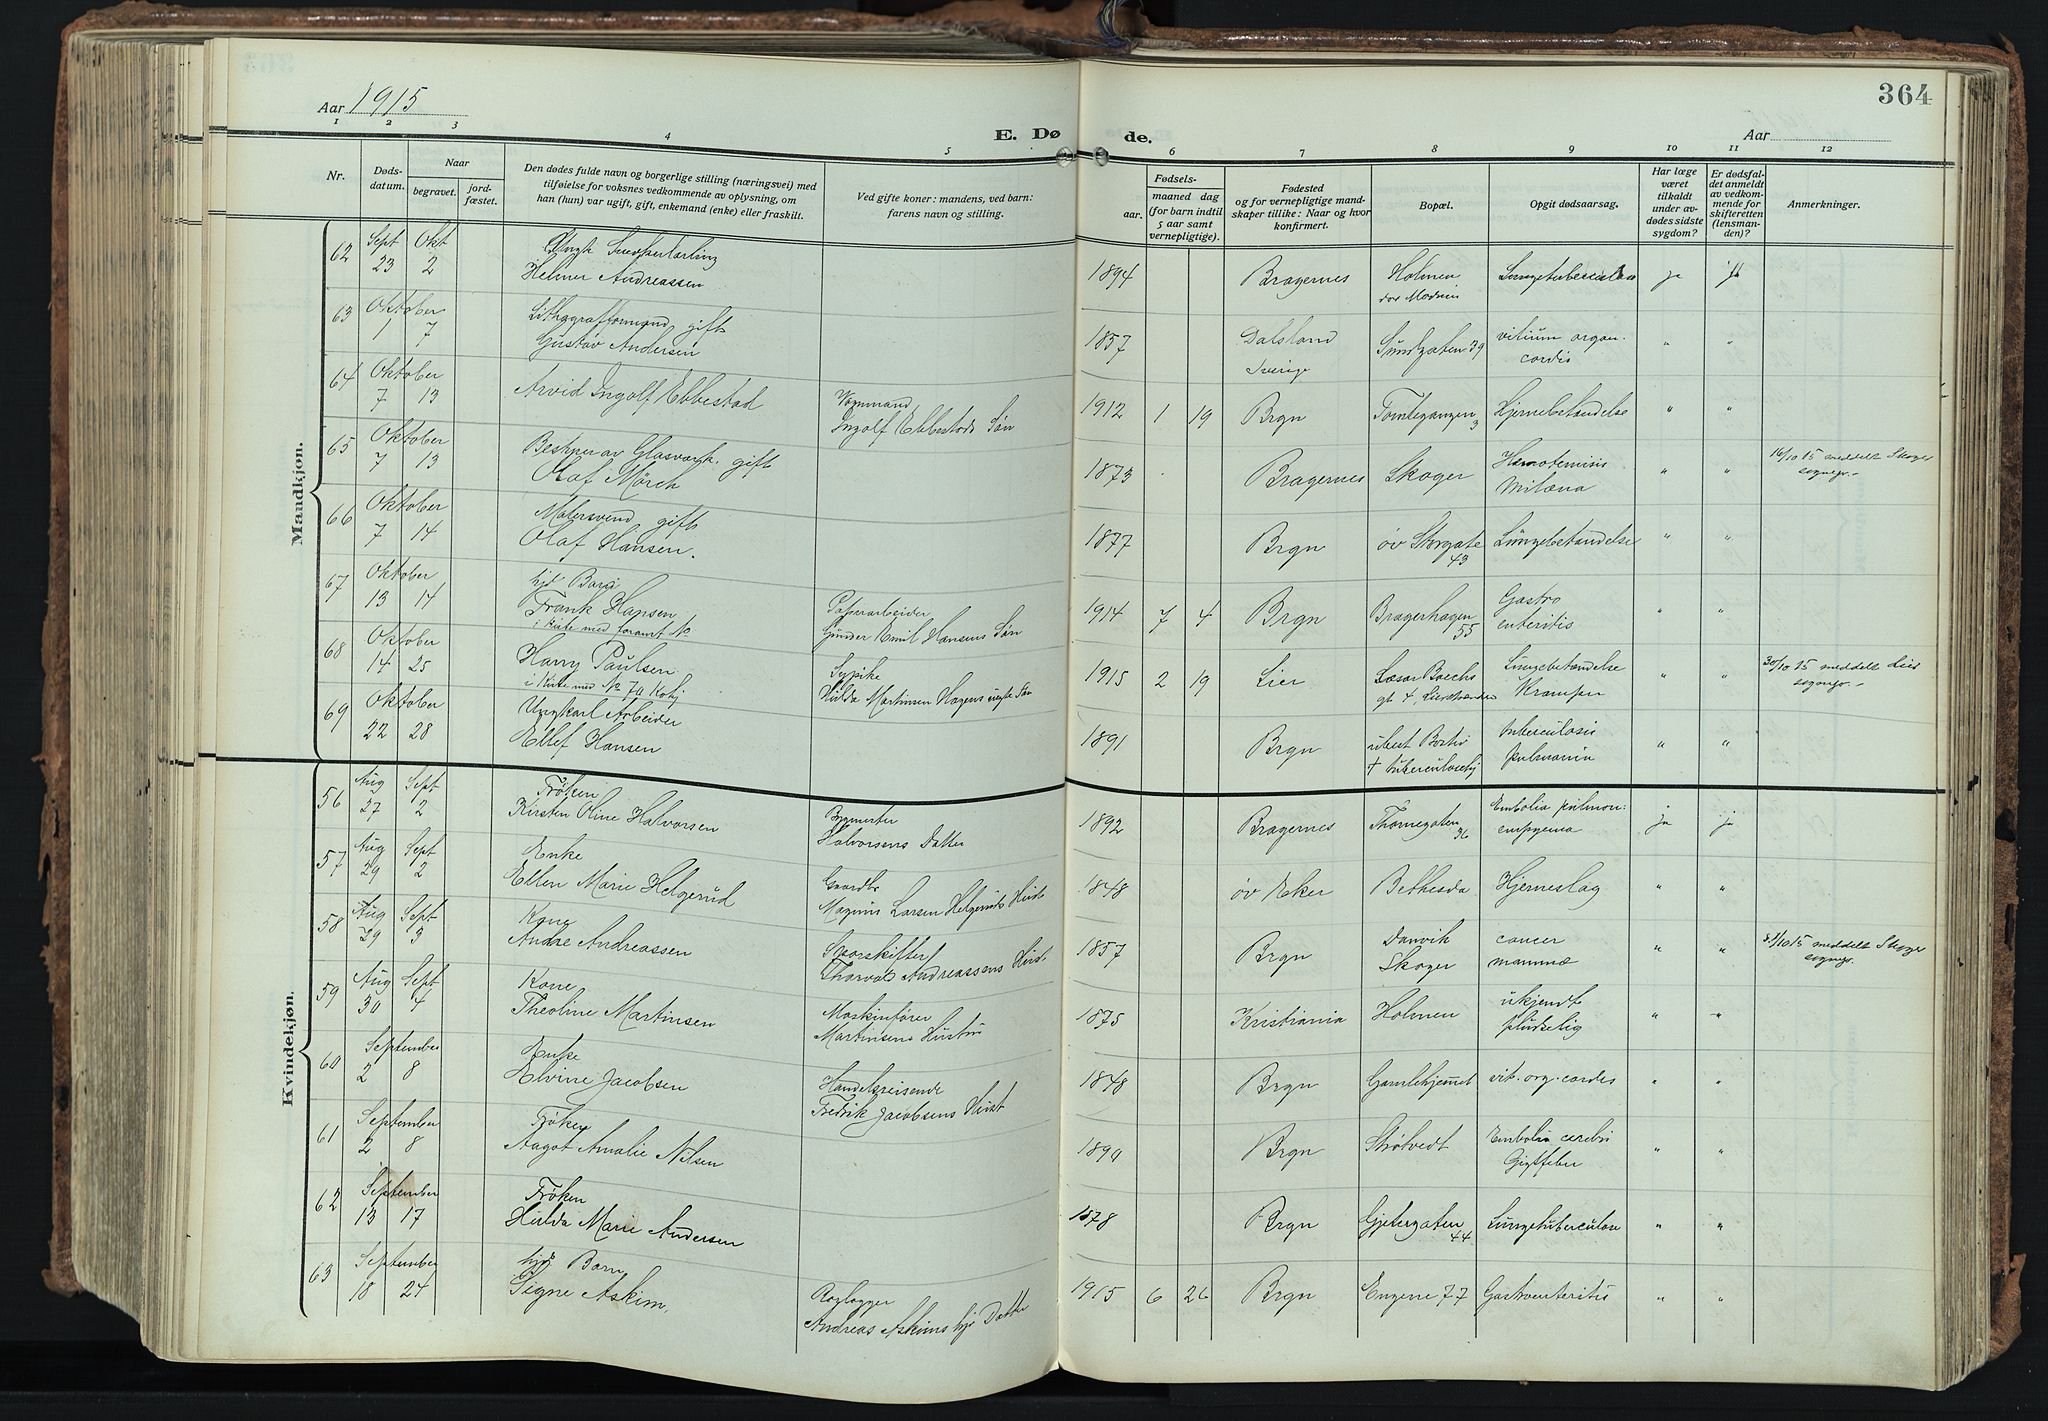 364
Aar 1915
E. Dø de.
Aar
1 2 3 4 5 6 7 8 9 10 11 12
Nr.
Døds-
datum.
Naar
begravet.
jord-
fæstet.
Den dødes fulde navn og borgerlige stilling (næringsvei) med
tilføielse for voksnes vedkommende av oplysning, om
han (hun) var ugift, gift, enkemand (enke) eller fraskilt.
Ved gifte koner: mandens, ved barn:
farens navn og stilling.
Fødsels-
aar.
maaned dag
(for barn indtil
5 aar samt
vernepligtige).
Fødested
og for vernepligtige mand-
skaper tillike: Naar og hvor
konfirmert.
Bopæl.
Opgit dødsaarsag.
Har læge
været
tilkaldt
under av-
dødes sidste
sygdom?
Er dødsfal-
det anmeldt
av vedkom-
mende for
skifteretten
(lensman-
den)?
Anmerkninger.
Mandkjøn.
62 Sept 23 Okt 2
Helmer Andreassen
1894 Bragernes Holmen Lungetuberculose ja ja
63 Oktober 1 7
gift
Gustav Andersen
1857 Dalsland Sverige Sundgaten 39 vitium organ. cordis " "
64 Oktober 7 13
Arvid Ingolf Ebbestad
Vognmand
Ingolf Ebbestads Søn
1912 1 19 Brgn Tomtegangen 3 Hjernebetændelse " "
65 Oktober 7 13
Bestyrer av Glasværk. gift
Olaf Mørch
1873 Bragernes Skoger " " 16/10 15 meddelt Skoger sognepr.
66 Oktober 7 14
Malersvend gift
Olaf Hansen.
1877 Brgn øv Storgate 43 Lungebetændelse " "
67 Oktober 13 14
Frank Hansen
i kiste med foramt No
Papirarbeider
Gunder Emil Hansens Søn
1914 7 4 Brgn Bragerhagen 55 Gastro enteritis " "
68 Oktober 14 25
Harry Paulsen
i Kiste med No 70
Sypike
Hilda Martinsen Hagens uegte Søn
1915 2 19 Lier Lungebetændelse Kramper " " 30/10 15 meddelt Lier sognepr.
69 Oktober 22 28
Ungkarl Arbeider
Ellef Hansen
1891 Brgn ubest Bosted tuberculosis pulmonum " "
Kvindekjøn.
56 Aug 27 Sept 2
Frøken
Kirsten Oline Halvorsen
Halvorsens Datter
1892 Bragernes Thornegaten 36 Embolia pulmon: empyema ja ja
57 Aug 29 Sept 2
Enke
Ellen Marie Helgerud
Gaardbr
Magnus Larsen Helgeruds Hust
1848 øv Eker Bethesda Hjerneslag " "
58 Aug 29 Sept 3
Kone
Andre Andreassen
Sporskifter
Thorval Andreassens Hust.
1857 Brgn Danvik Skoger cancer mammæ " " /10 15 meddelt Skoger sognepr.
59 Aug 30 Sept 4
Kone
Theoline Martinsen
Maskinfører
Martinsens Hustru
1875 Kristiania Holmen ukjendt pludselig " "
60 September 2 8
Enke
Elvine Jacobsen
Handelsreisende
Fredrik Jacobsens Hust
1848 Brgn Gamlehjemmet vit. org. cordis " "
61 September 2 8
Frøken
Aagot Amalie Nilsen
1890 Brgn Strøtvedt Embolia cerebri Gigtfeber " "
62 September 13 17
Frøken
Hilda Marie Andersen
1878 Brgn Gjetergaten 44 Lungetuberculose " "
63 September 18 24
hjd Barn
Signe Askim.
Rørlegger
Andreas Askims hjd Datter
1915 6 26 Brgn Engene 77 Gastroenteritis " "